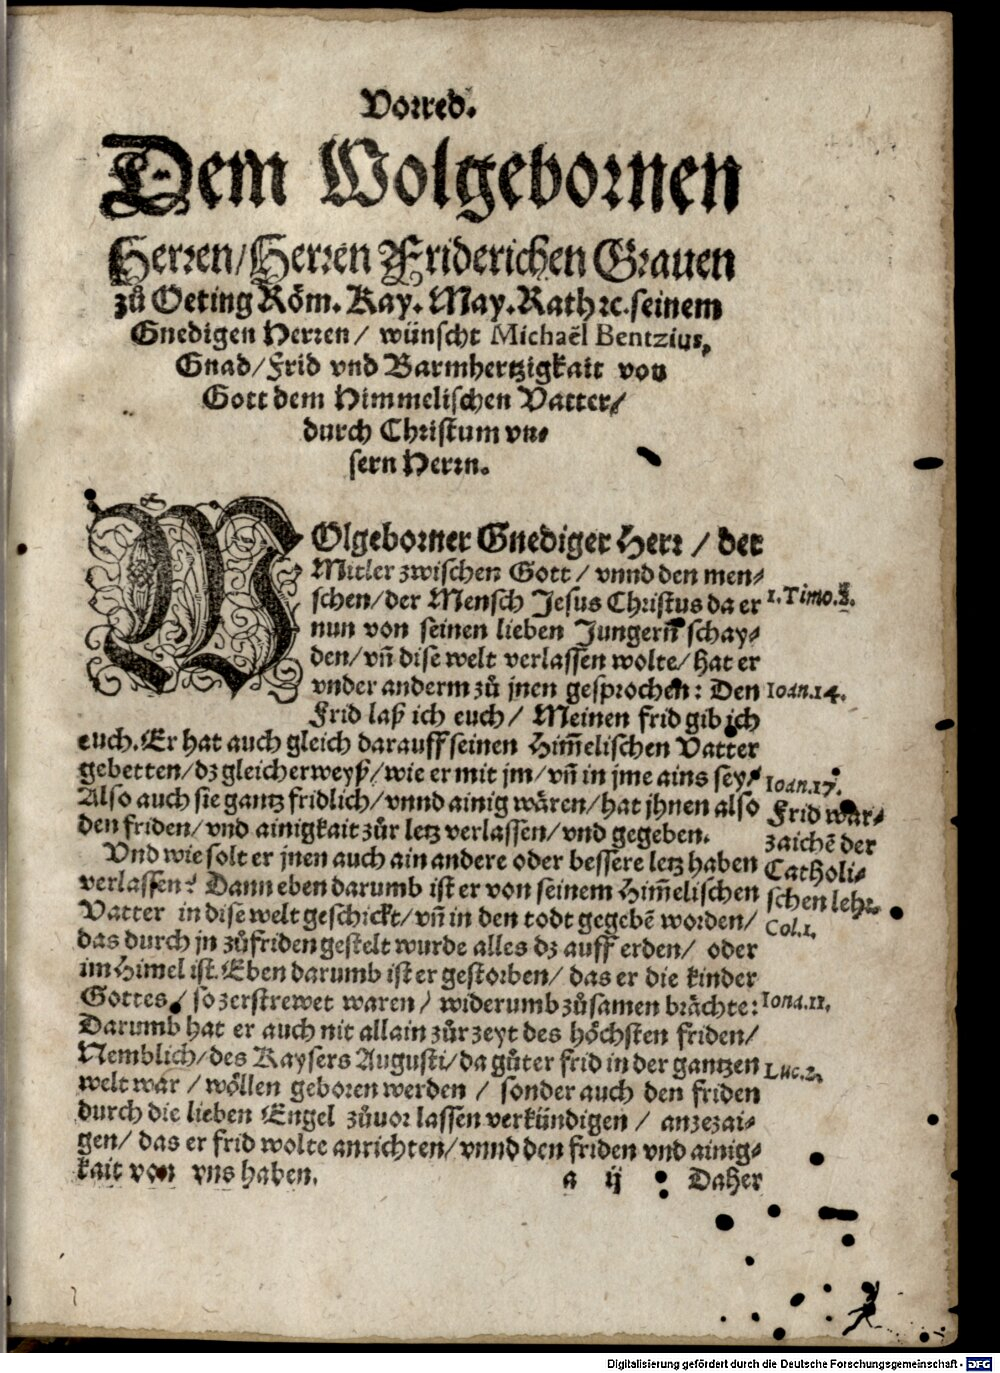 Vorred.
Dem Wolgebornen
Herren/ Herren Friderichen Grauen
zů Oeting Röm. Kay. May. Rath ꝛc. seinem
Gnedigen Herren / wünscht Michaël Bentzius,
Gnad/ Frid vnd Barmhertzigkait von
Gott dem Himmelischen Vatter/
durch Christum vn-
sern Herrn.
WOlgeborner Gnediger Herr / der
Mitler zwischen Gott / vnnd den men-
schen/ der Mensch Jesus Christus da er
1. Timo.
nun von seinen lieben Jungern schay-
den/ vñ dise welt verlassen wolte/ hat er
vnder anderm zů jnen gesprochen: Den
Ioan.14.
Frid laß ich euch/ Meinen frid gib ich
euch. Er hat auch gleich darauff seinen Him̃elischen Vatter
gebetten/ dz gleicherweyß/ wie er mit jm/ vñ in jme ains sey/
Ioan.17.
Also auch sie gantz fridlich/ vnnd ainig wären/ hat jhnen also
Frid war-
den friden/ vnd ainigkait zůr letz verlassen/ vnd gegeben.
zaichẽ der
Vnd wie solt er jnen auch ain andere oder bessere letz haben
Catholi-
verlassen? Dann eben darumb ist er von seinem Him̃elischen
schen lehr.
Vatter in dise welt geschickt/ vñ in den todt gegebẽ worden/
Col.1.
das durch jn zůfriden gestelt wurde alles dz auff erden/ oder
im Himel ist. Eben darumb ist er gestorben/ das er die kinder
Gottes/ so zerstrewet waren/ widerumb zůsamen brächte:
Iona.11.
Darumb hat er auch nit allain zůr zeyt des höchsten friden/
Nemblich/ des Kaysers Augusti/ da gůter frid in der gantzen
Luc.2.
welt war / wöllen geboren werden / sonder auch den friden
durch die lieben Engel zůuor lassen verkündigen / anzezai-
gen/ das er frid wolte anrichten/ vnnd den friden vnd ainig-
kait von vns haben.
a ij Daher
Digitalisierung gefördert durch die Deutsche Forschungsgemeinschaft - DFG